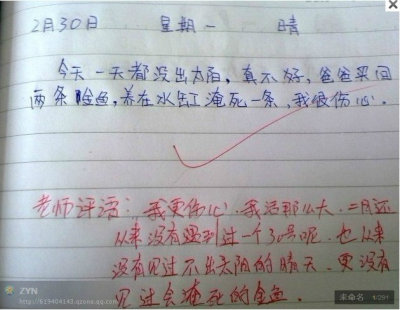 2月30日 星期一 晴
今天一天都没出太阳,真不好,爸爸买回
两条金鱼,养在水缸淹死一条,我很伤心。
老师评语:我更伤心.我活那么大.二月还
从来没有遇到过一个30号呢.也从来
没有见过不出太阳的晴天.更没有
见过会淹死的金鱼.
ZYN
http://619404143.qzone.qq.com
未命名 4/291